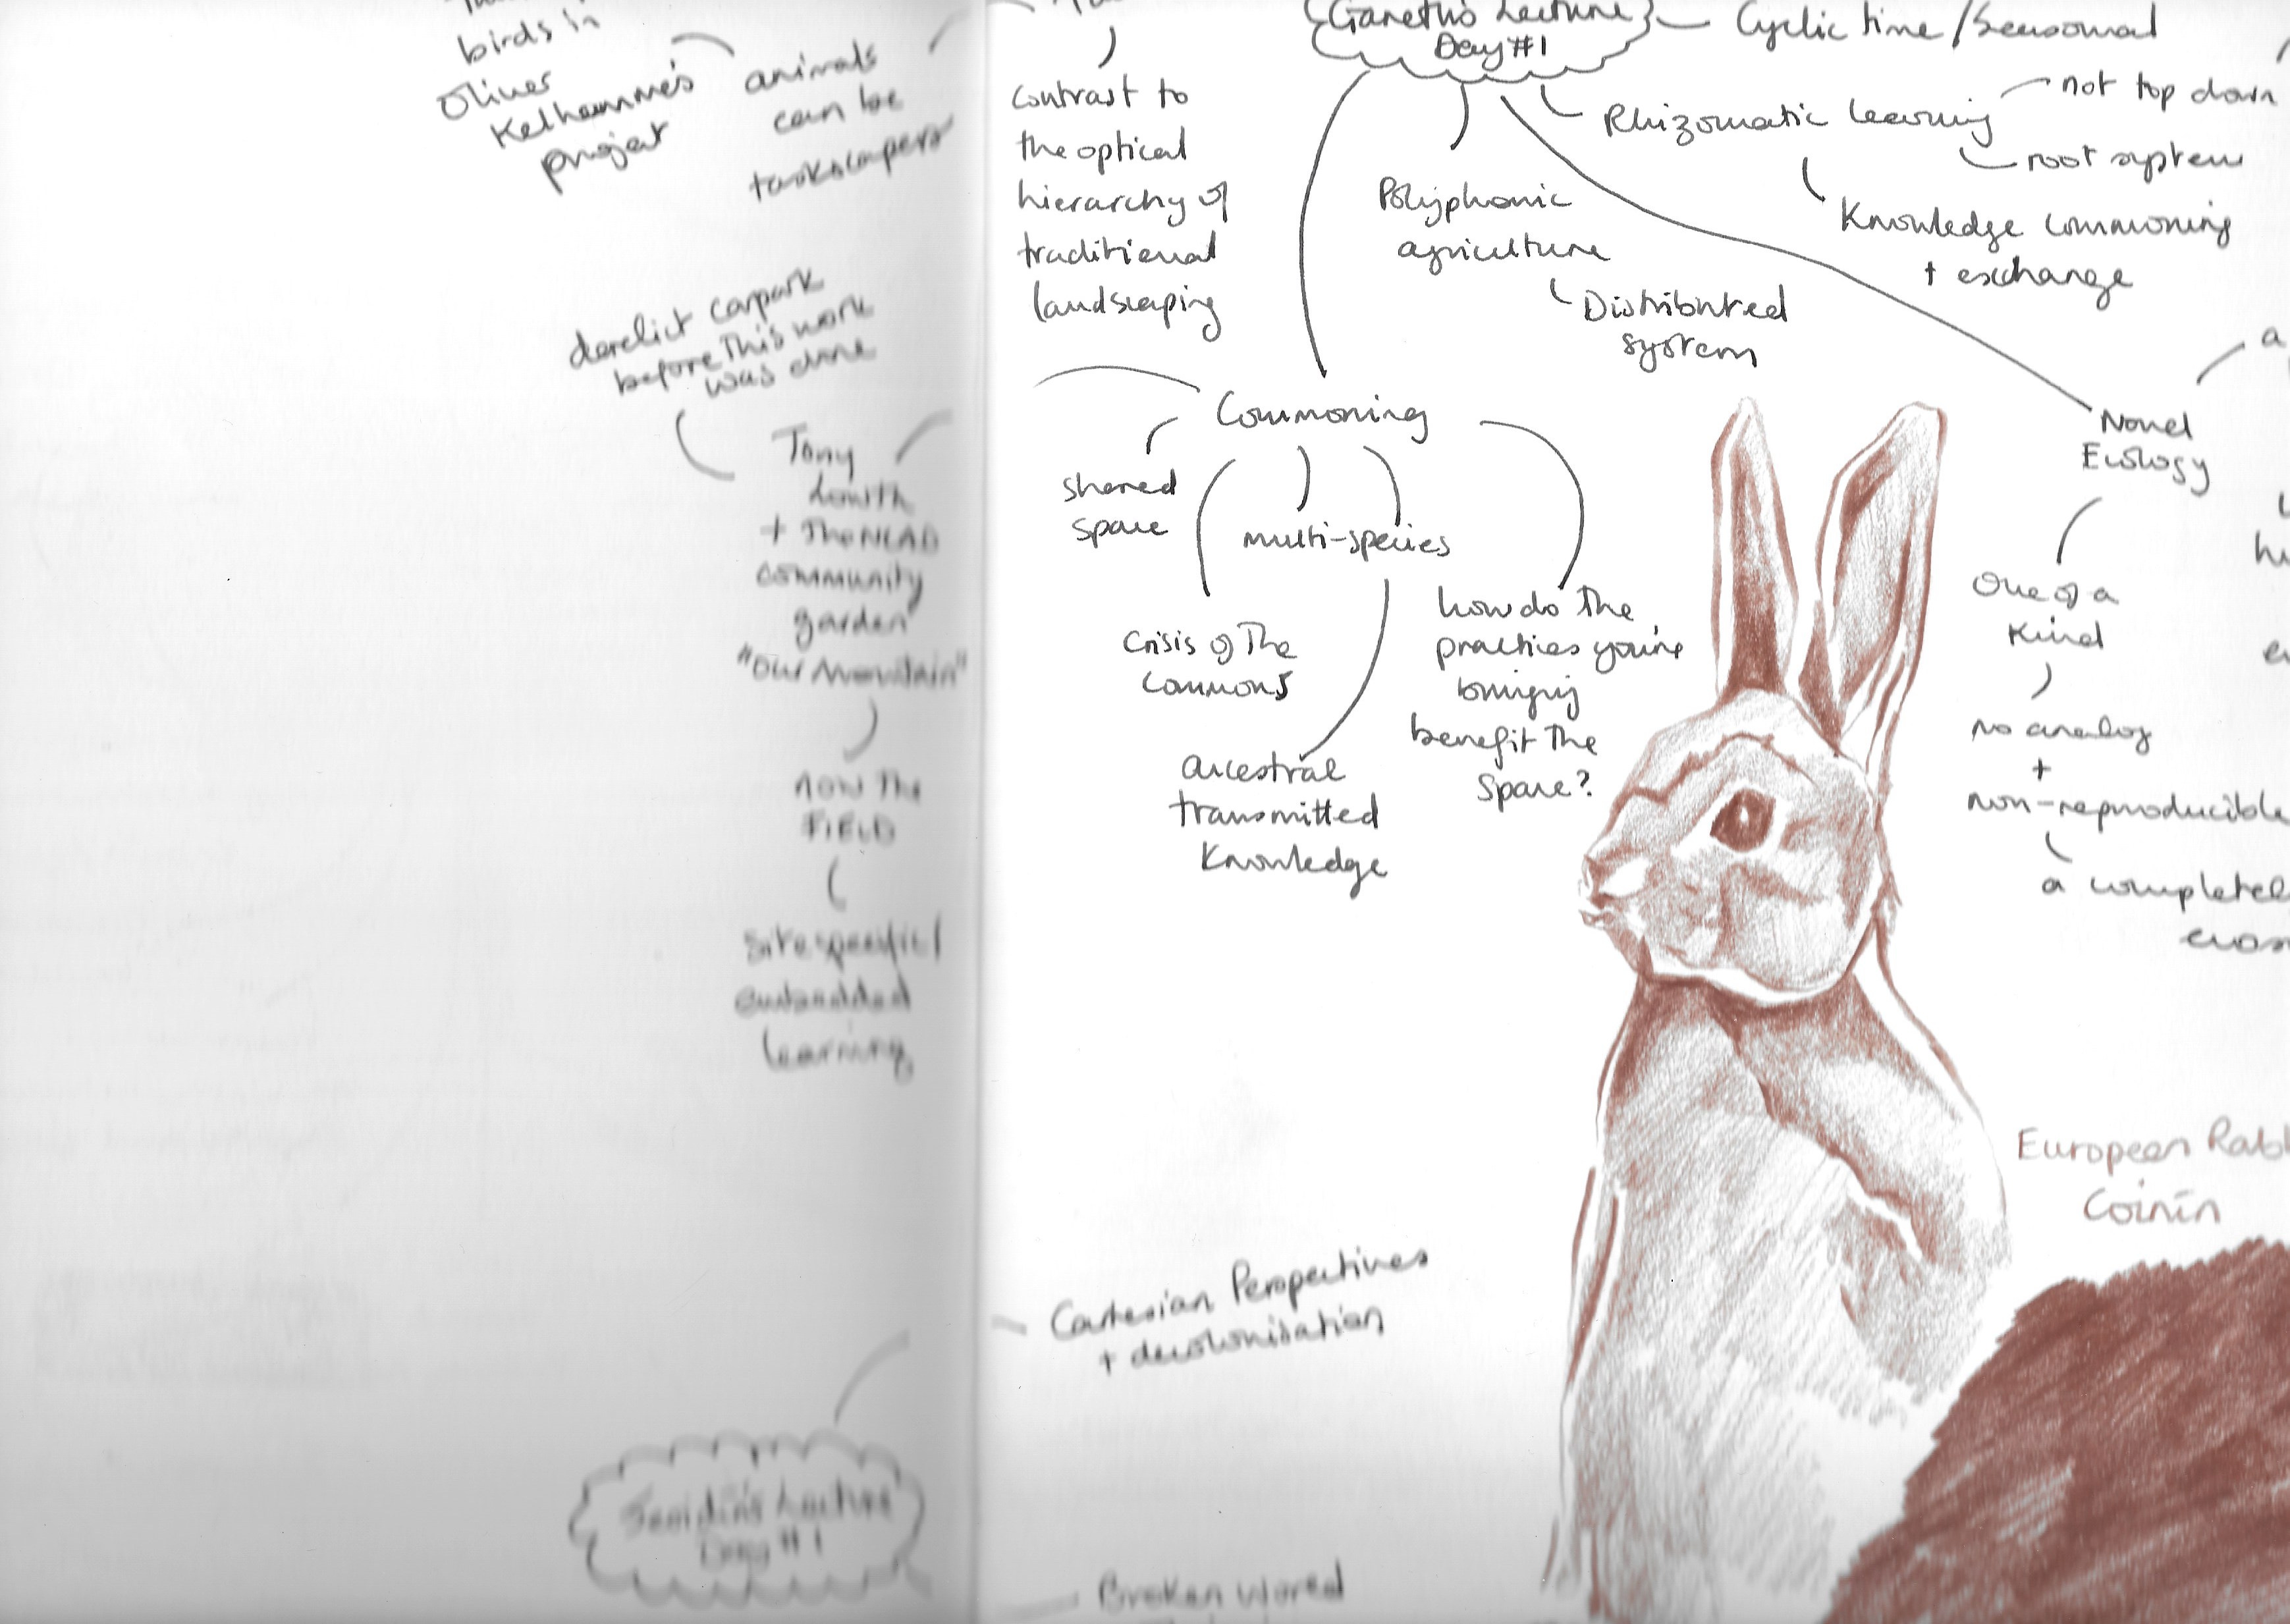 birds in
Oliver
Kelhammer's
project
animals
can be
taskscapers
derelict carpark
before this work
was done
Tony
Lowth
+ The NCAD
community
garden
"Our Mountain"
now the
FIELD
site specific/
embedded
learning
Lecture
Day #1
contrast to
the optical
hierarchy of
traditional
landscaping
Gareth's Lecture
Day #1
Cyclic time / Seasonal
Rhizomatic learning
not top down
root system
Knowledge commoning
+ exchange
Polyphonic
agriculture
Distributed
system
Commoning
shared
space
multi-species
Crisis of the
Commons
how do the
practices you're
bringing
benefit the
space?
Ancestral
transmitted
Knowledge
a
Novel
Ecology
One of a
Kind
no analog
+
non-reproducible
a
European Rabb
Coinín
Cartesian Perspectives
+ decolonisation
Broken World